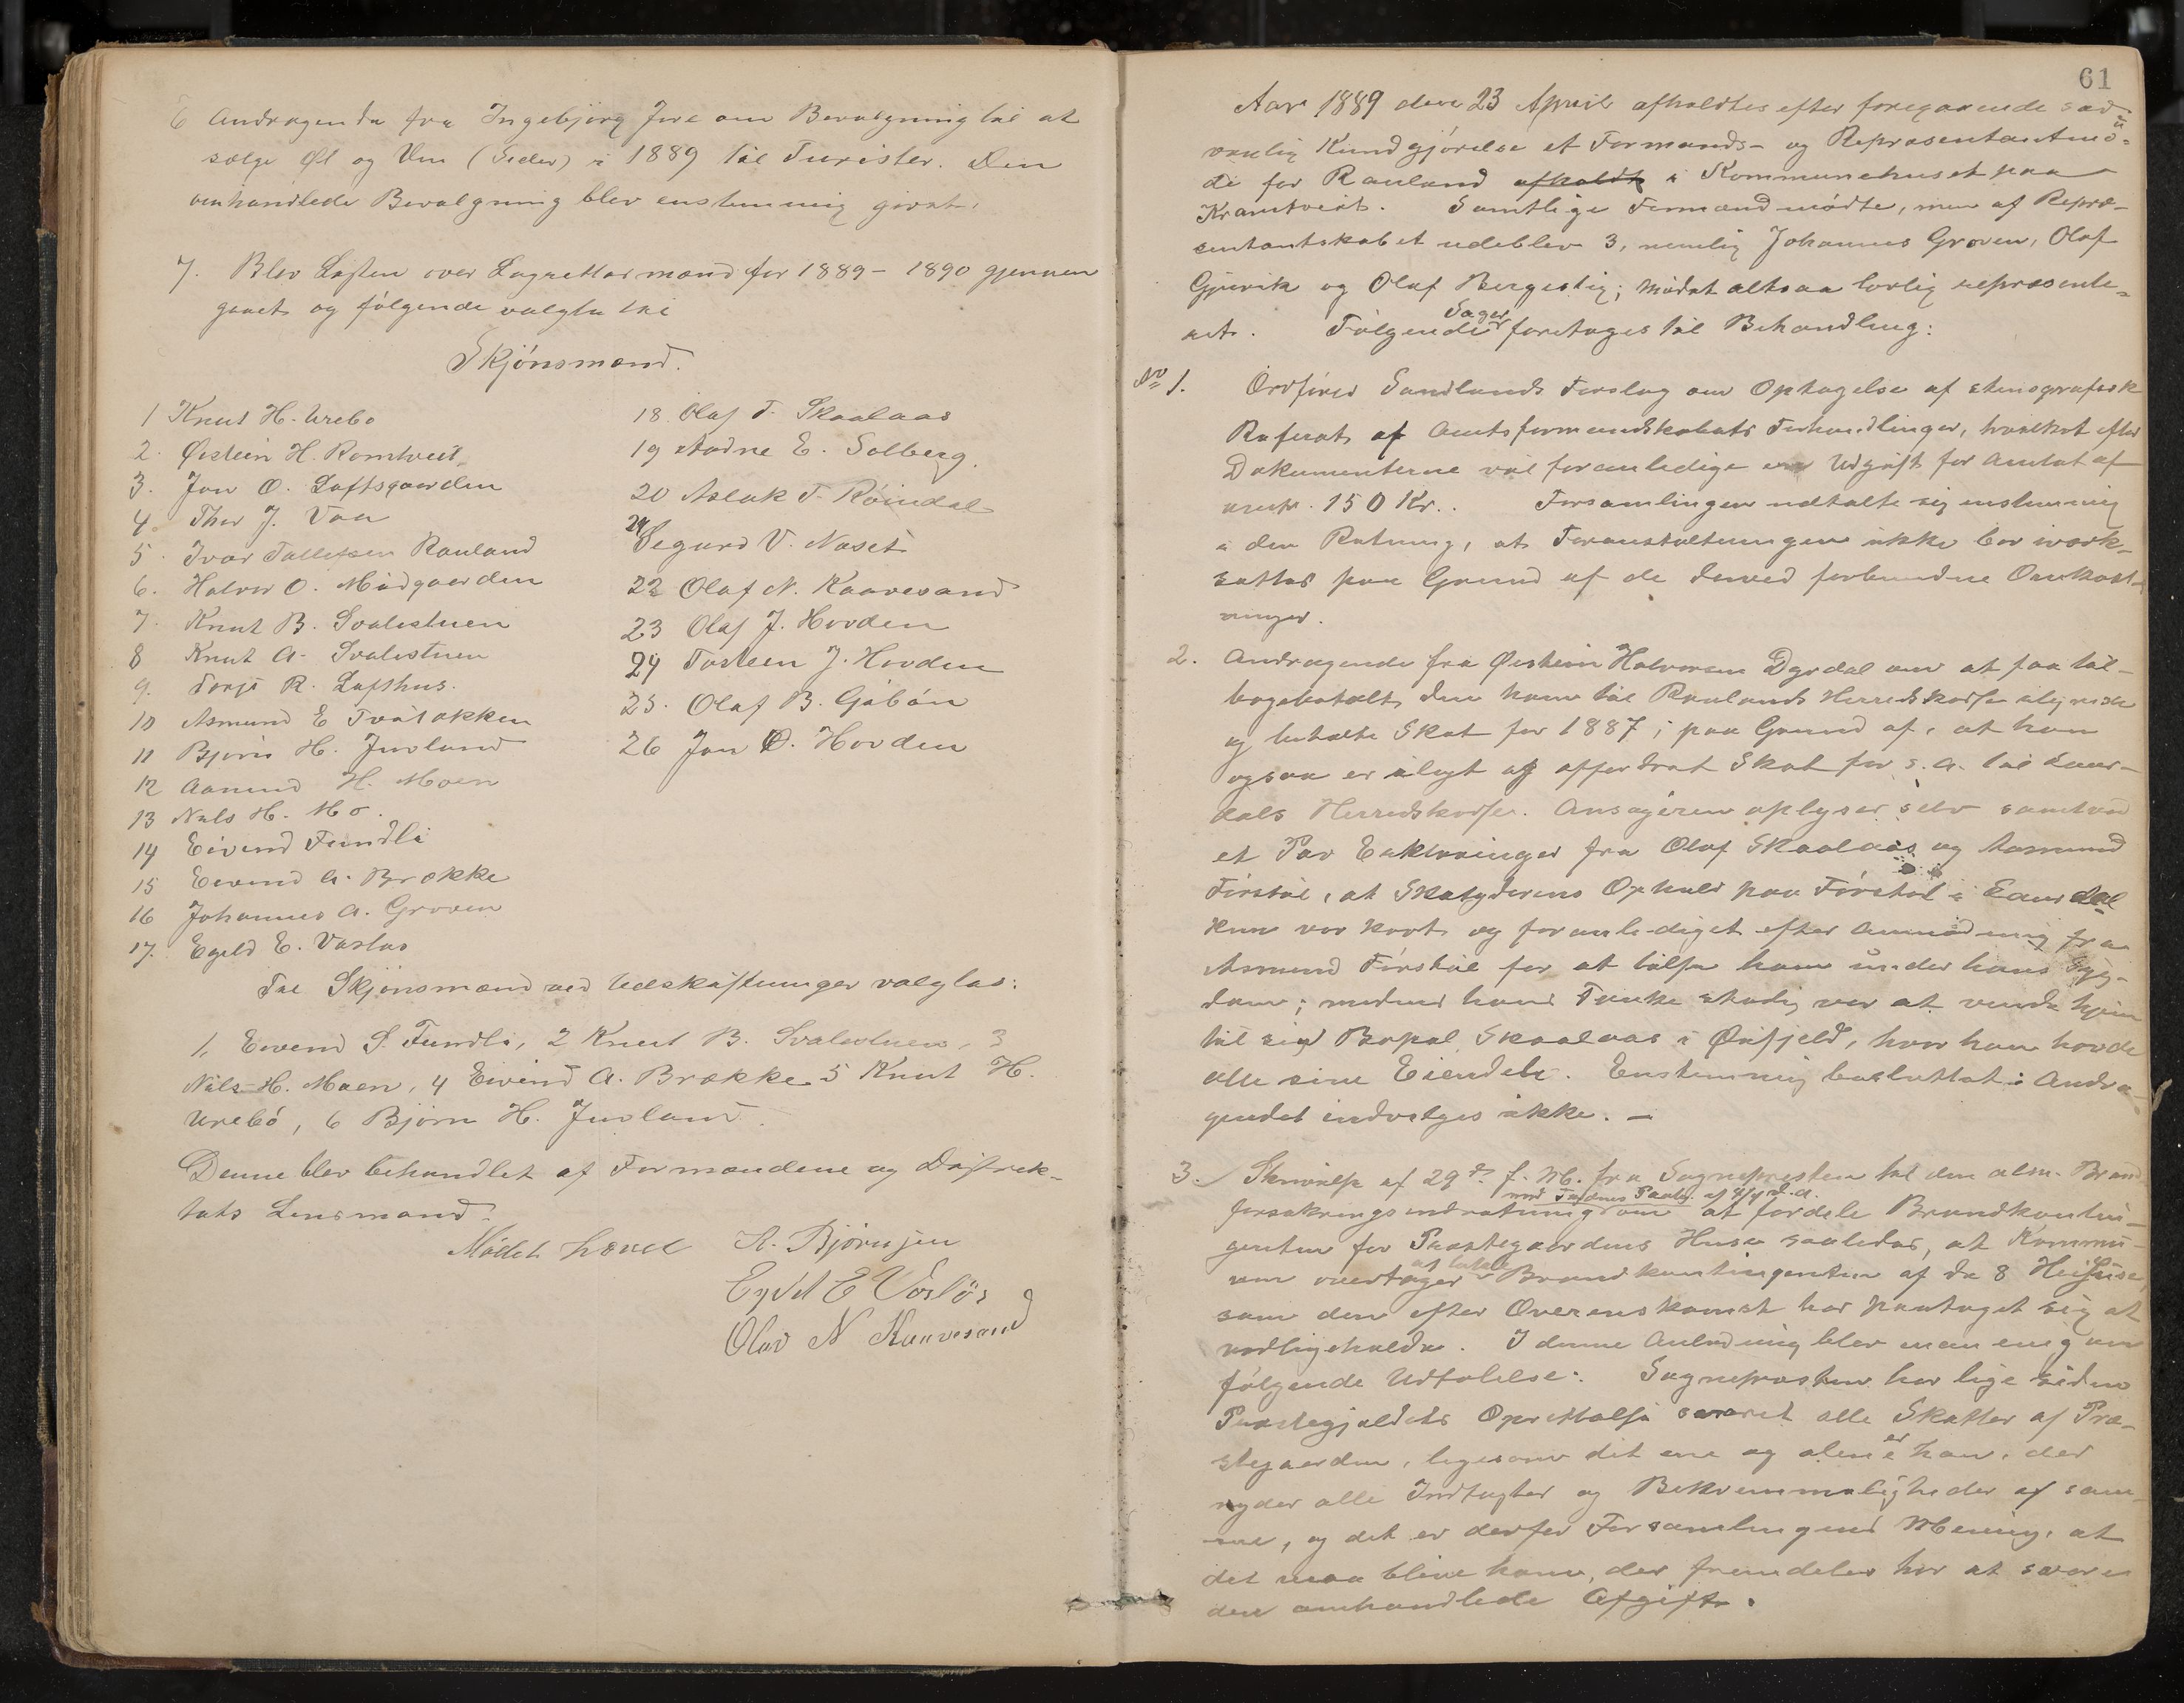 6 Andragende fra Ingebjørg Jore om Bevalgning til at
sælge Øl og Vin (Sider) i 1889 til Turister. Den
omhandlede Bevalgning blev enstemmig givet.
7. Blev Listen over Lagrettesmænd for 1889 - 1890 gjennem
gaaet og følgende valgte til
Skjønsmænd.
1 Knut H. Urebø
2. Øistein H. Romtveit
3. Jon O. Loftsgaarden
4 Thor J. Vaa
5. Ivar Tallefsen Rauland
6. Halvor O. Midgaarden
7. Knut B. Svalestuen
8 Knut A. Svalestuen
9. Torje R. Lofthus.
10 Asmund E Tveitokken
11 Bjørn H. Juvland
12 Aanund H. Moen
13 Nils H. Mo.
14 Eivind Fundli
15 Eivind A. Brække
16 Johannes A. Groven
17. Egild E. Vasløs
18. Olaf T. Skaalaas
19 Aadne E. Solberg
20 Aslak T. Røindal
21 Segurd V. Næset
22 Olaf N. Kaavesand
23 Olaf J. Hovden
24 Tostein J. Hovden
25. Olaf B. Gibøn
26 Jon O. Hovden
Til Skjønsmænd ved Udskiftninger valgtes:
1, Eivend S. Fundli, 2 Knut B. Svalestuen, 3
Nils H. Moen, 4 Eivind A. Brække 5 Knut H.
Urebø, 6 Bjørn H. Juvland.
Denne blev behandlet af Formændene og Distrik-
tets Lensmand.
Mødet hævet
A. Bjørnsen
Egild E Vasløs
Olav N Kaavesand
61
Aar 1889 den 23 April afholdtes efter foregaaende sæd-
vanlig Kundgjørelse et Formands- og Repræsentantmø-
de for Rauland afholdt i Kommunehuset paa
Kramtveit. Samtlige Formænd mødte, men af Repræ-
sentantskabet udeblev 3, nemlig Johannes Groven, Olaf
Gjuvik og Olaf Bergestig; mødet altsaa lovlig repræsente-
ret. Følgende Sager foretages til Behandling:
No 1. Ordfører Sandlands Forslag om Optagelse af stenografisk
Referat af Amtsformandskabets Forhandlinger, hvilket efter
Dokumenterne vil foranledige en Udgift for Amtet af
circa. 150 Kr.. Forsamlingen udtalte sig enstemmig
i den Retning, at Foranstaltningen ikke bør iværk-
sættes paa Grund af de derved forbundne Omkost-
ninger.
2. Andragende fra Øistein Halvorsen Dyrdal om at faa til-
bagebetalt den ham til Raulands Herredskasse ilignede
og betalte Skat for 1887, paa Grund af, at han
ogsaa er ilagt og affordret Skat for s. A. til Laur-
dals Herredskasse. Ansøgeren oplyser selv samtved
et Par Erklæringer fra Olaf Skaalaas og Asmund
Førstøl, at Skatyderens Ophold paa Førstøl i Laurdal
kun var kort og foranlediget efter Anmodning fra
Asmund Førstøl for at hilse ham under hans Syg-
dom; medens hans Tanke stadig var at vende hjem
til sin Bopæl Skaalaas i Øifjeld, hvor han havde
alle sine Eiendele. Enstemmig besluttet: Andra-
gendet indvilges ikke. -
3. Skrivelse af 29de f. M. fra Sognepresten til den alm. Brand-
forsikringsindretning med Paateg. af 4/4 d. a. om at fordele Brandkontin-
genten for Præstegaardens Huse saaledes, at Kommu-
nen overtager at betale Brandkontingenten af de 8 Huse,
som den efter Overenskomst har paataget sig at
vedligeholde. I denne Anledning blev man enig om
følgende Udtalelse: Sognepresten har lige siden
Præstegjeldets Oprettelse svaret alle Skatter af Præ-
stegaarden, ligesom det ene og alene er ham, der
nyder alle Indtægter og Bekvemmeligheder af sam-
me, og det er derfor Forsamlingens Mening, at
det maa blive ham, der fremdeles har at svare
den omhandlede Afgift.